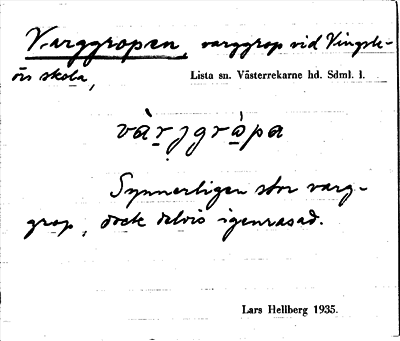 Varggropen, varggrop vid Vingsle-
örs skola,
Lista sn. Västerrekarne hd. Sdml. l.
và̱r̥grò̱pa
Synnerligen stor varg-
grop, dock delvis igenrasad.
Lars Hellberg 1935.